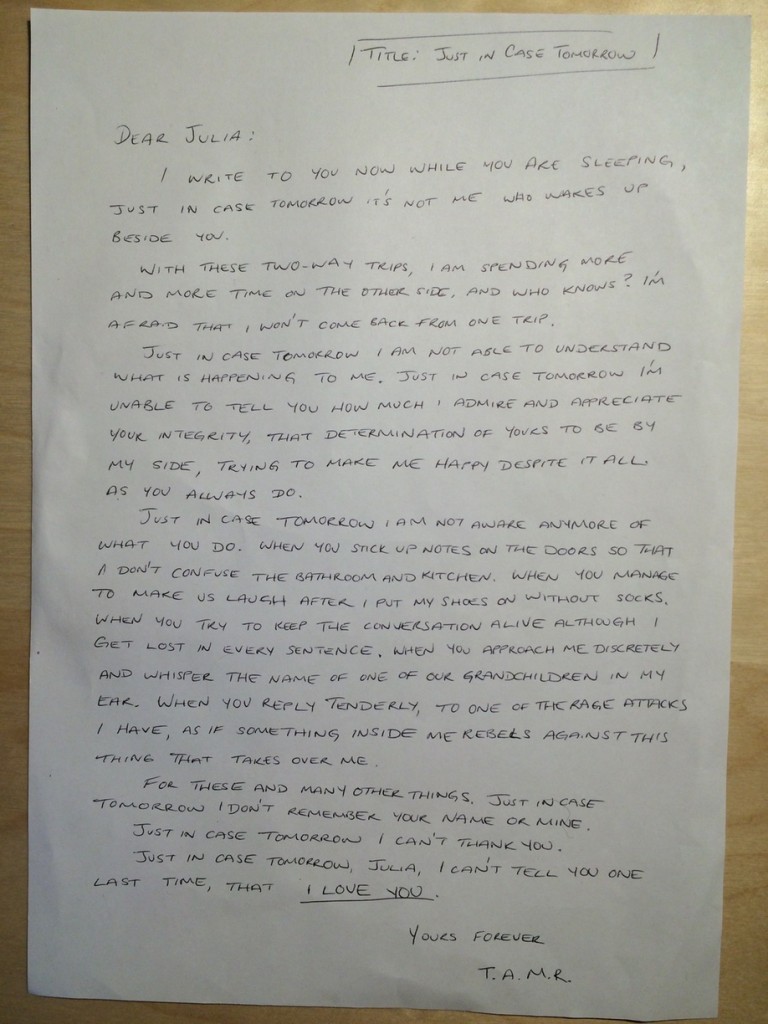 TITLE: JUST IN CASE TOMORROW
DEAR JULIA:
I WRITE TO YOU NOW WHILE YOU ARE SLEEPING,
JUST IN CASE TOMORROW IT'S NOT ME WHO WAKES UP
BESIDE YOU.
WITH THESE TWO-WAY TRIPS, I AM SPENDING MORE
AND MORE TIME ON THE OTHER SIDE. AND WHO KNOWS? I'M
AFRAID THAT I WON'T COME BACK FROM ONE TRIP.
JUST IN CASE TOMORROW I AM NOT ABLE TO UNDERSTAND
WHAT IS HAPPENING TO ME. JUST IN CASE TOMORROW I'M
UNABLE TO TELL YOU HOW MUCH I ADMIRE AND APPRECIATE
YOUR INTEGRITY, THAT DETERMINATION OF YOURS TO BE BY
MY SIDE, TRYING TO MAKE ME HAPPY DESPITE IT ALL.
AS YOU ALWAYS DO.
JUST IN CASE TOMORROW I AM NOT AWARE ANYMORE OF
WHAT YOU DO. WHEN YOU STICK UP NOTES ON THE DOORS SO THAT
I DON'T CONFUSE THE BATHROOM AND KITCHEN. WHEN YOU MANAGE
TO MAKE US LAUGH AFTER I PUT MY SHOES ON WITHOUT SOCKS.
WHEN YOU TRY TO KEEP THE CONVERSATION ALIVE ALTHOUGH I
GET LOST IN EVERY SENTENCE. WHEN YOU APPROACH ME DISCRETELY
AND WHISPER THE NAME OF ONE OF OUR GRANDCHILDREN IN MY
EAR. WHEN YOU REPLY TENDERLY, TO ONE OF THE RAGE ATTACKS
I HAVE, AS IF SOMETHING INSIDE ME REBELS AGAINST THIS
THING THAT TAKES OVER ME.
FOR THESE AND MANY OTHER THINGS. JUST IN CASE
TOMORROW I DON'T REMEMBER YOUR NAME OR MINE.
JUST IN CASE TOMORROW I CAN'T THANK YOU.
JUST IN CASE TOMORROW, JULIA, I CAN'T TELL YOU ONE
LAST TIME, THAT I LOVE YOU.
YOURS FOREVER
T.A.M.R.